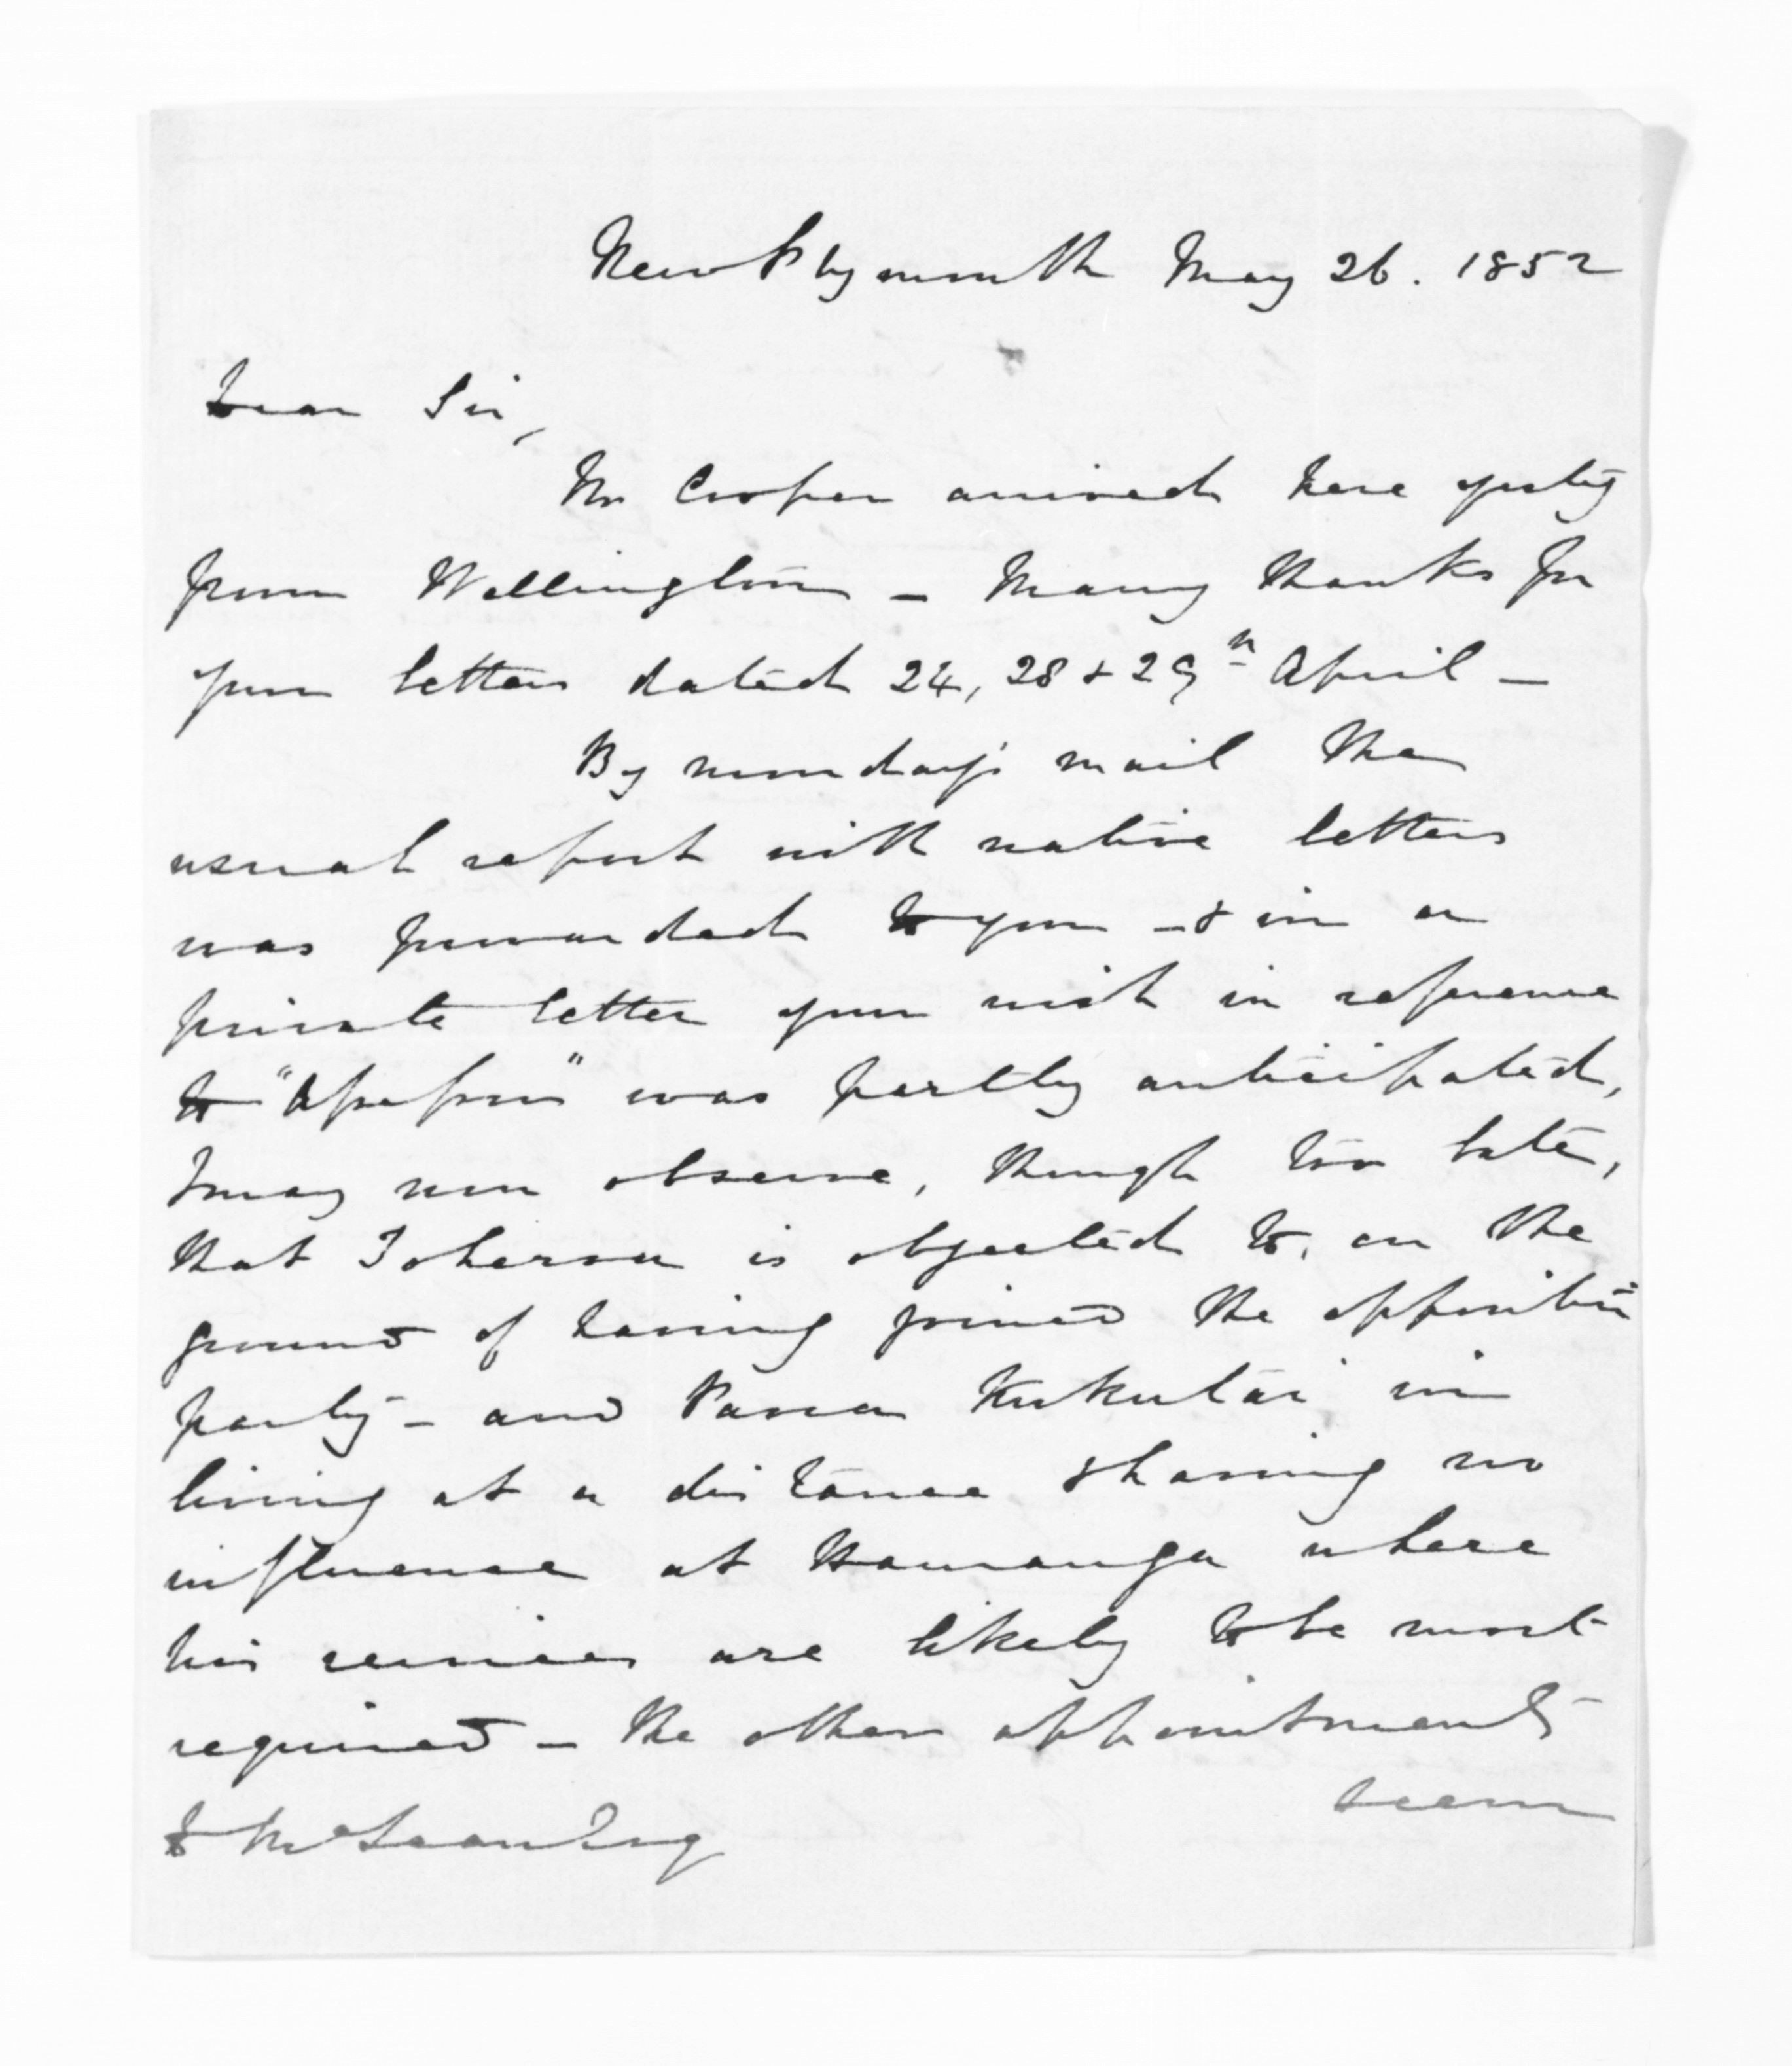 New Plymouth May 26. 1852
Dear Sir,
Mr Cooper arrived here yesty
from Wellington – Many thanks for
your letters dated 24, 28 & 29th April –
By monday's mail the
usual report with native letters
was forwarded to you – & in a
private letter your wish in reference
to "" was partly anticipated,
I may now observe, though too late,
that Joheroa is objected to, on the
ground of having joined the opposition
party – and Kukutai in
living at a distance & having no
influence at where
his services are likely to be most
required – the other appointments
seem
D McLean Esq